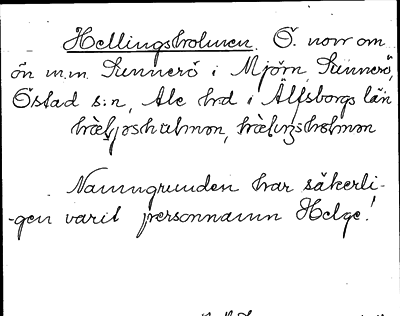 Hellingsholmen. Ö. norr om
ön m.m. Sunnerö i Mjörn, Sunnerö,
Östad s:n, Ale hd i Älfsborgs län
Namngrunden har säkerli-
-gen varit personnamn Helge!